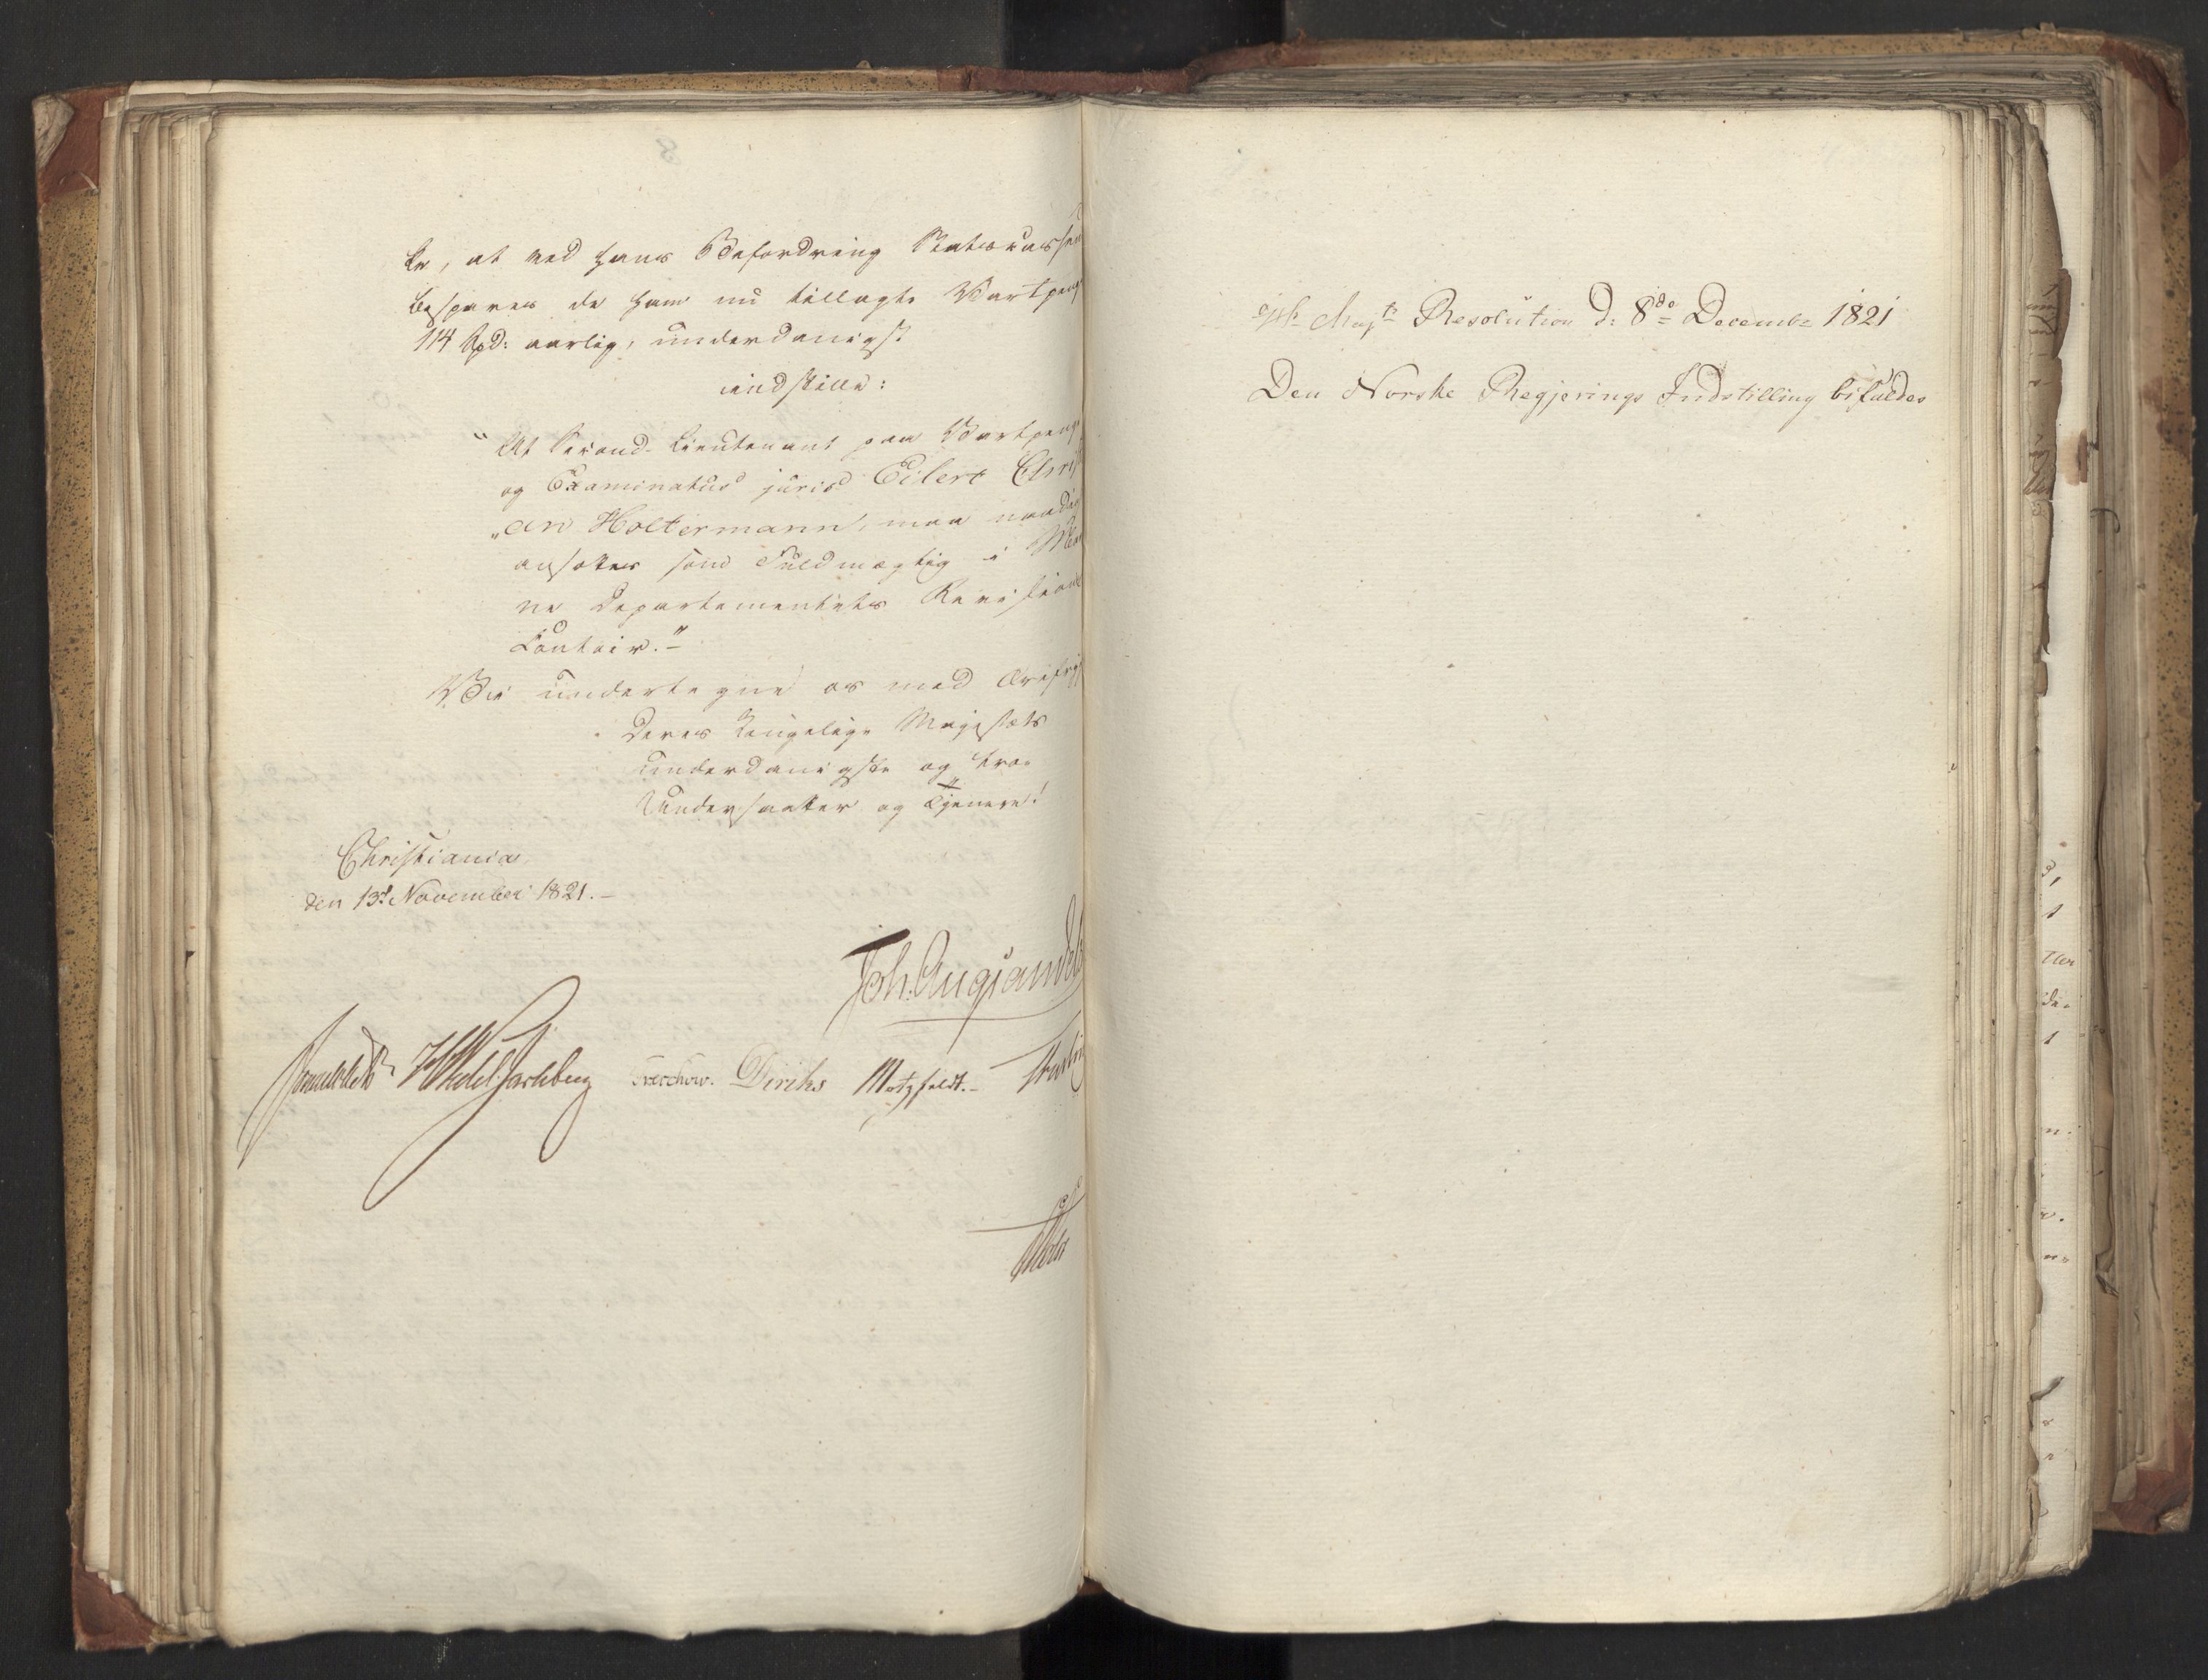 ke, at ved hans Befordring Statscassen
bespares de ham nu tillagte Vartpenge
114 Spd: aarlig, underdanigst
indstille:
"At Second-Lieutenant paa Vartpenge
og Examinatus juris Eilert Christi
"an Holtermann, maa naadigst
ansættes som Fuldmægtig i
ne Departementets Revisions
Contoir."-
Vi undertegne os med Ærefrygt
Deres Kongelige Majestæts
underdanigste og troe
Undersaatter og Tjenere!
Christiania
den 13d November 1821.-
Joh. Aug. Sandels
Sommerhielm HWedel Jarlsberg Treschow. Diriks Motzfeldt.-
Holst
Majts Resolution d: 8de Decembr 1821
Den Norske Regjerings Indstilling bifaldes